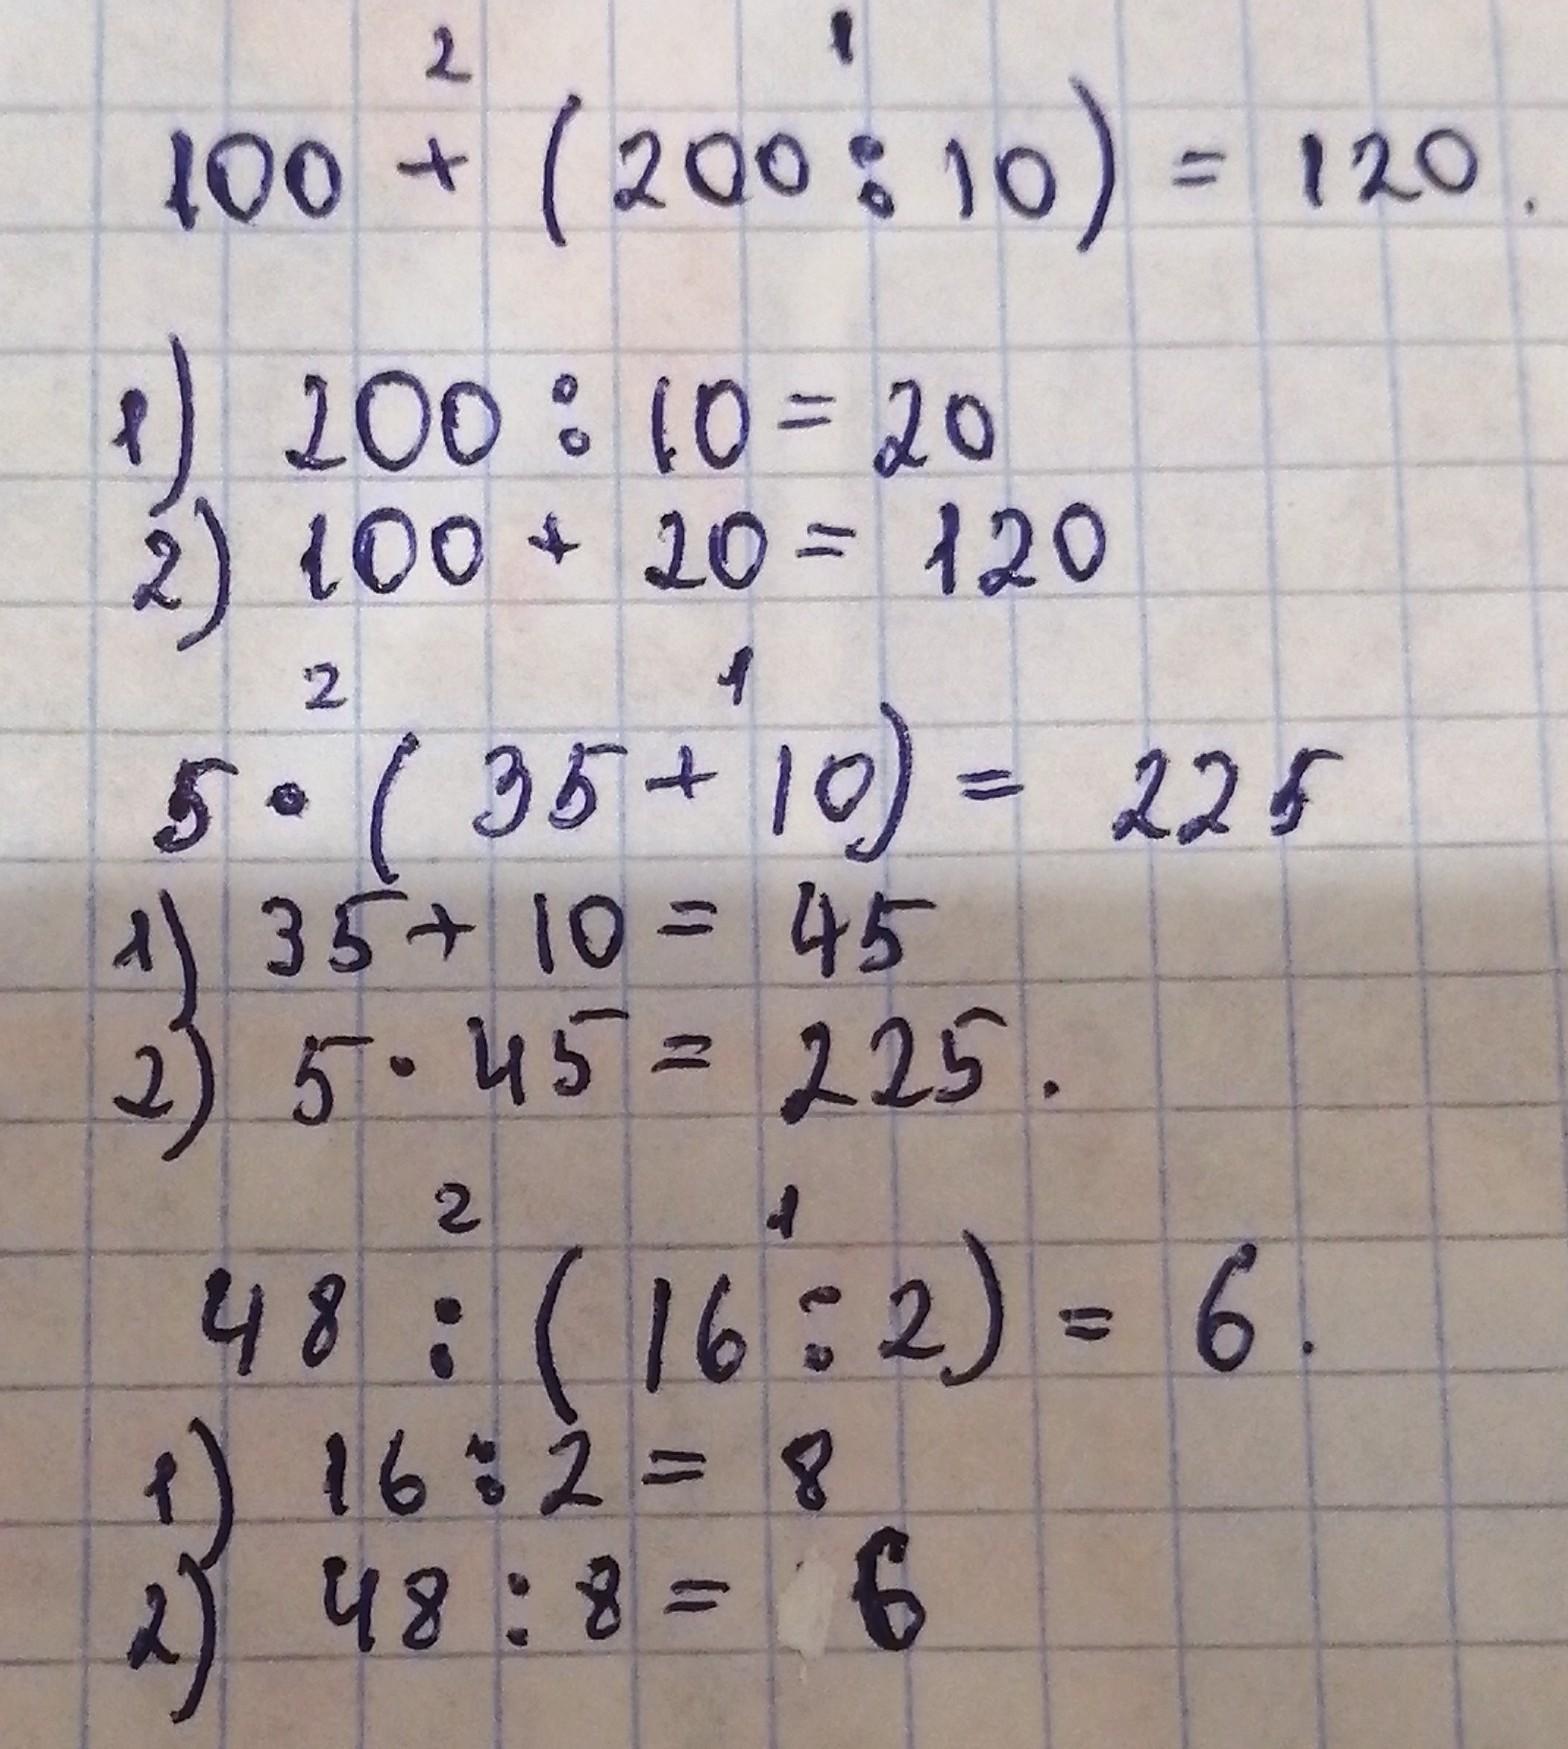 2 1
100 + (200 : 10) = 120.
1) 200 : 10 = 20
2) 100 + 20 = 120
2 1
5 • (35 + 10) = 225
1) 35 + 10 = 45
2) 5 · 45 = 225.
2 1
48 : (16 : 2) = 6.
1) 16 : 2 = 8
2) 48 : 8 = 6